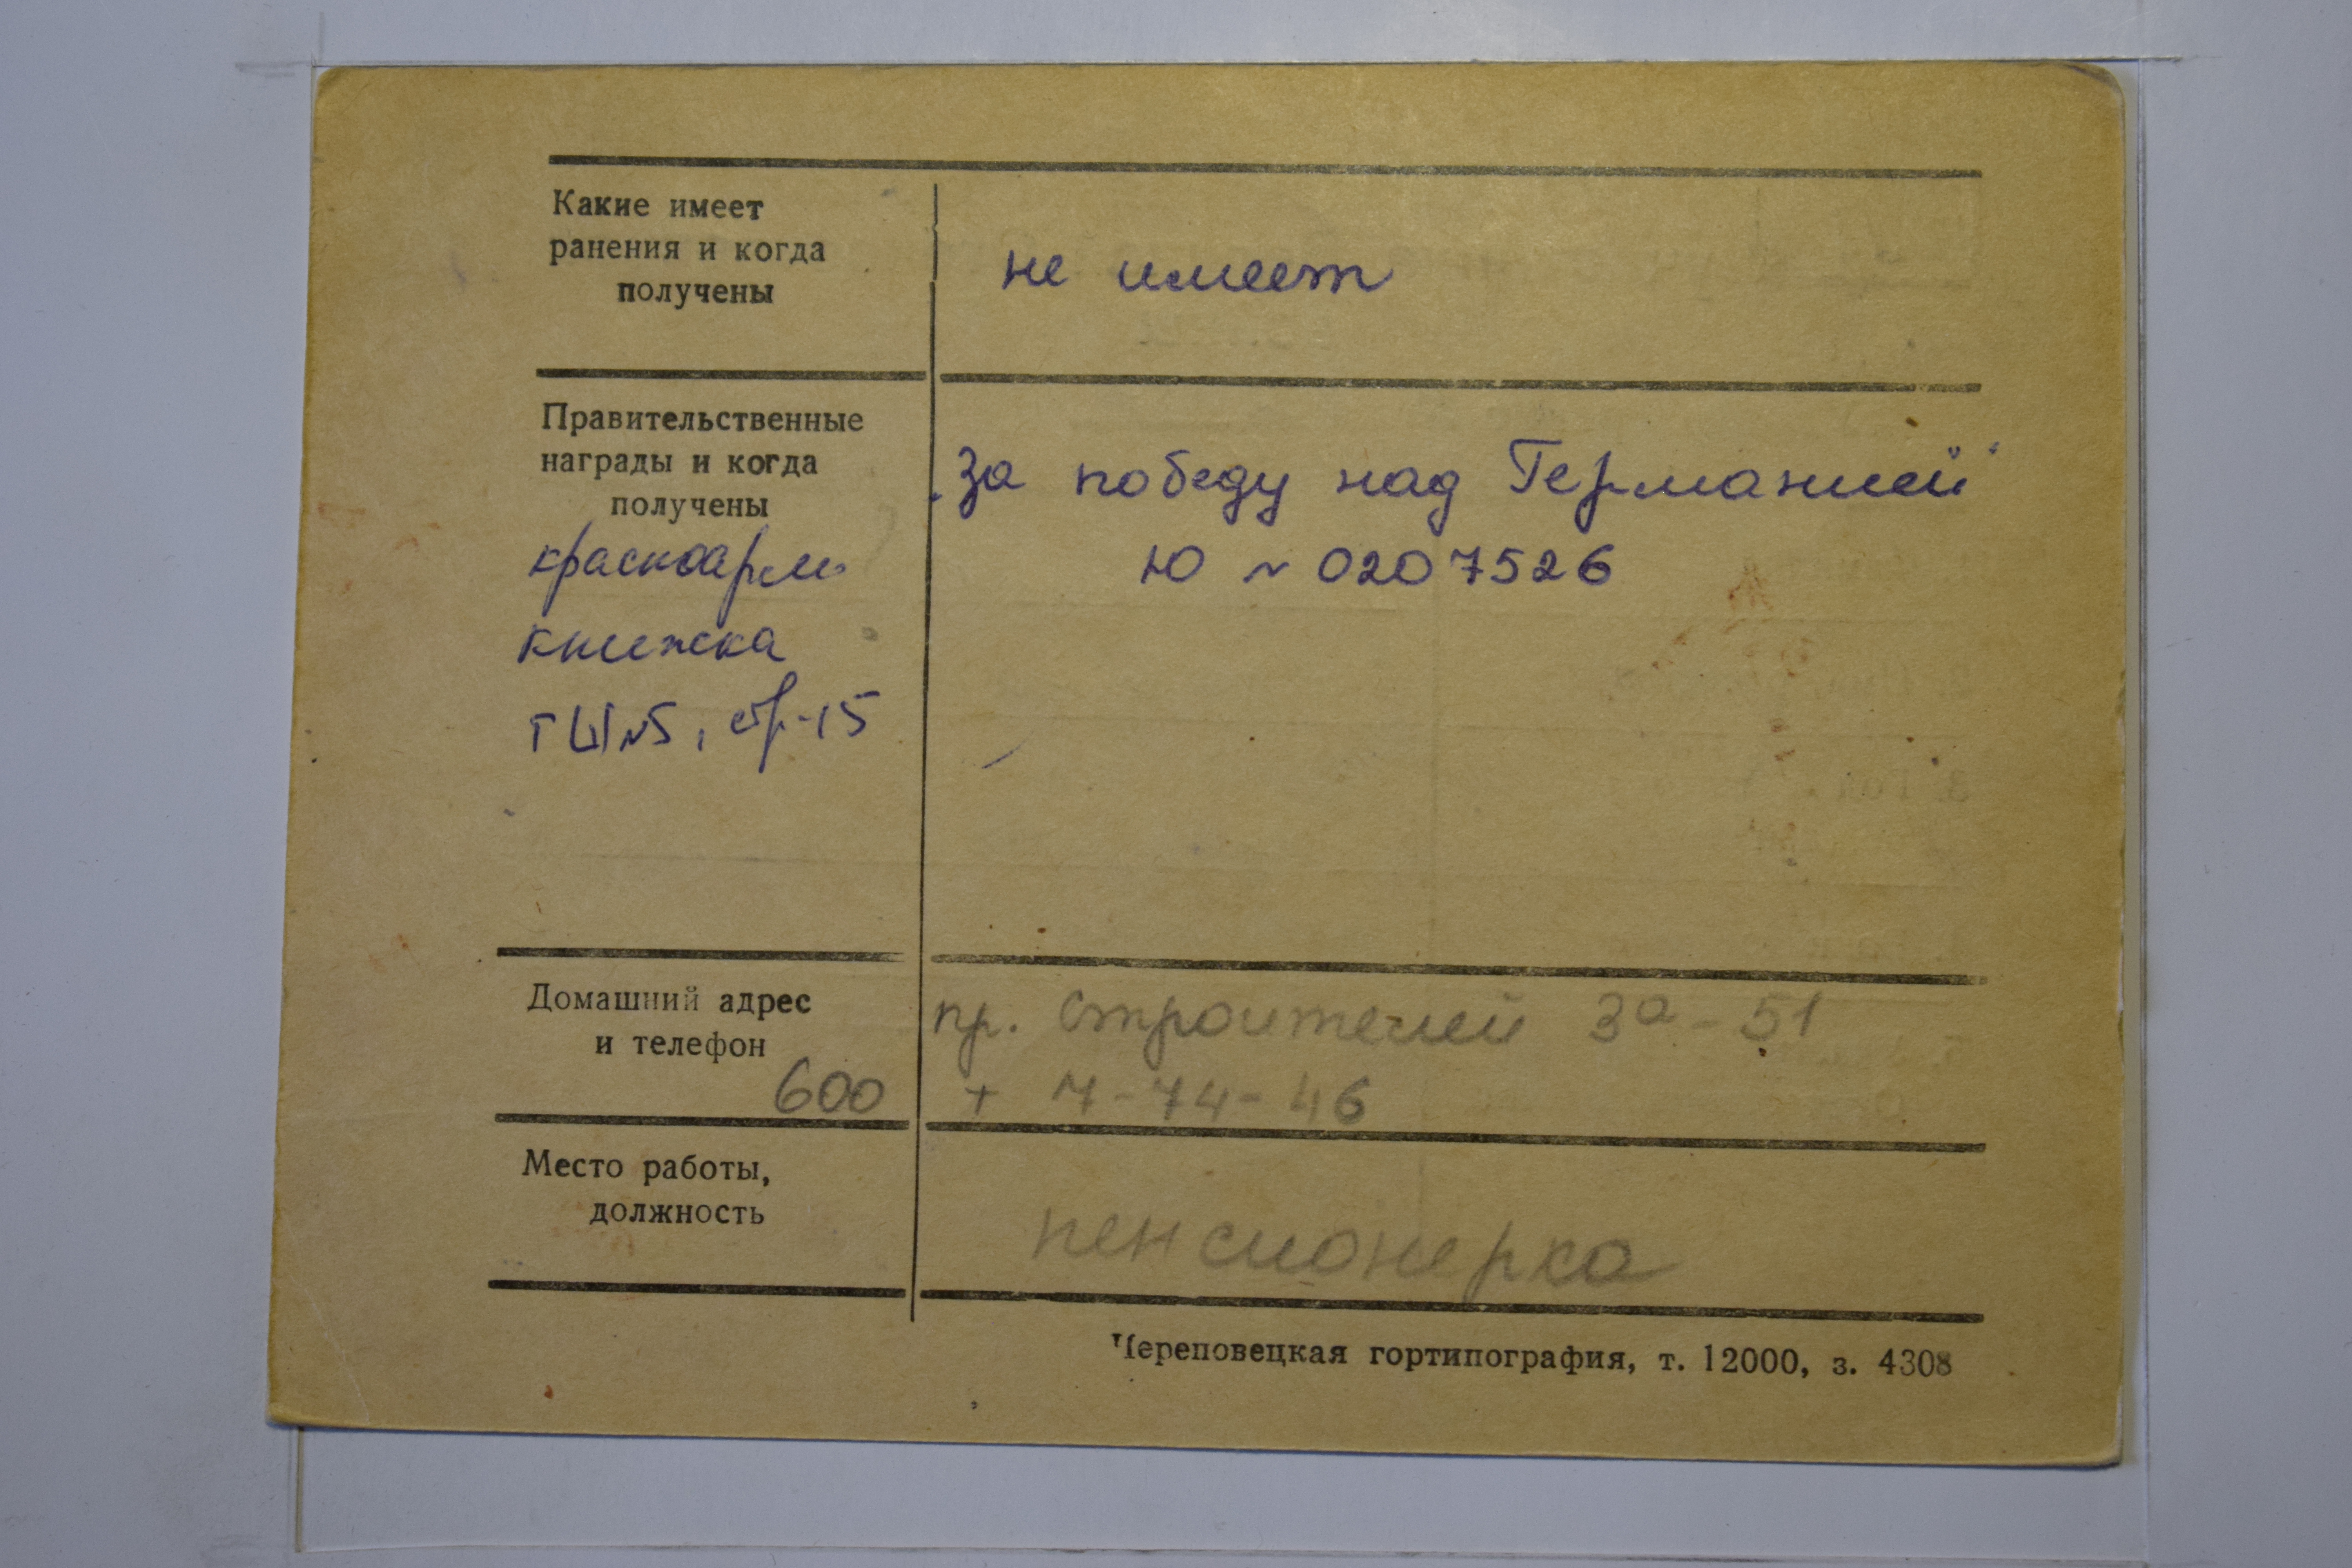 Какие имеет
ранения и когда
получены
не имеет
Правительственные
награды и когда
получены
„За победу над Германией“
Ю № 0207526
красноарм.
книжка
стр-15
Домашний адрес
и телефон
600
пр. Строителей 3а-51
т 7-74-46
Место работы,
должность
пенсионерка
Череповецкая гортипография, т. 12000, з. 4308